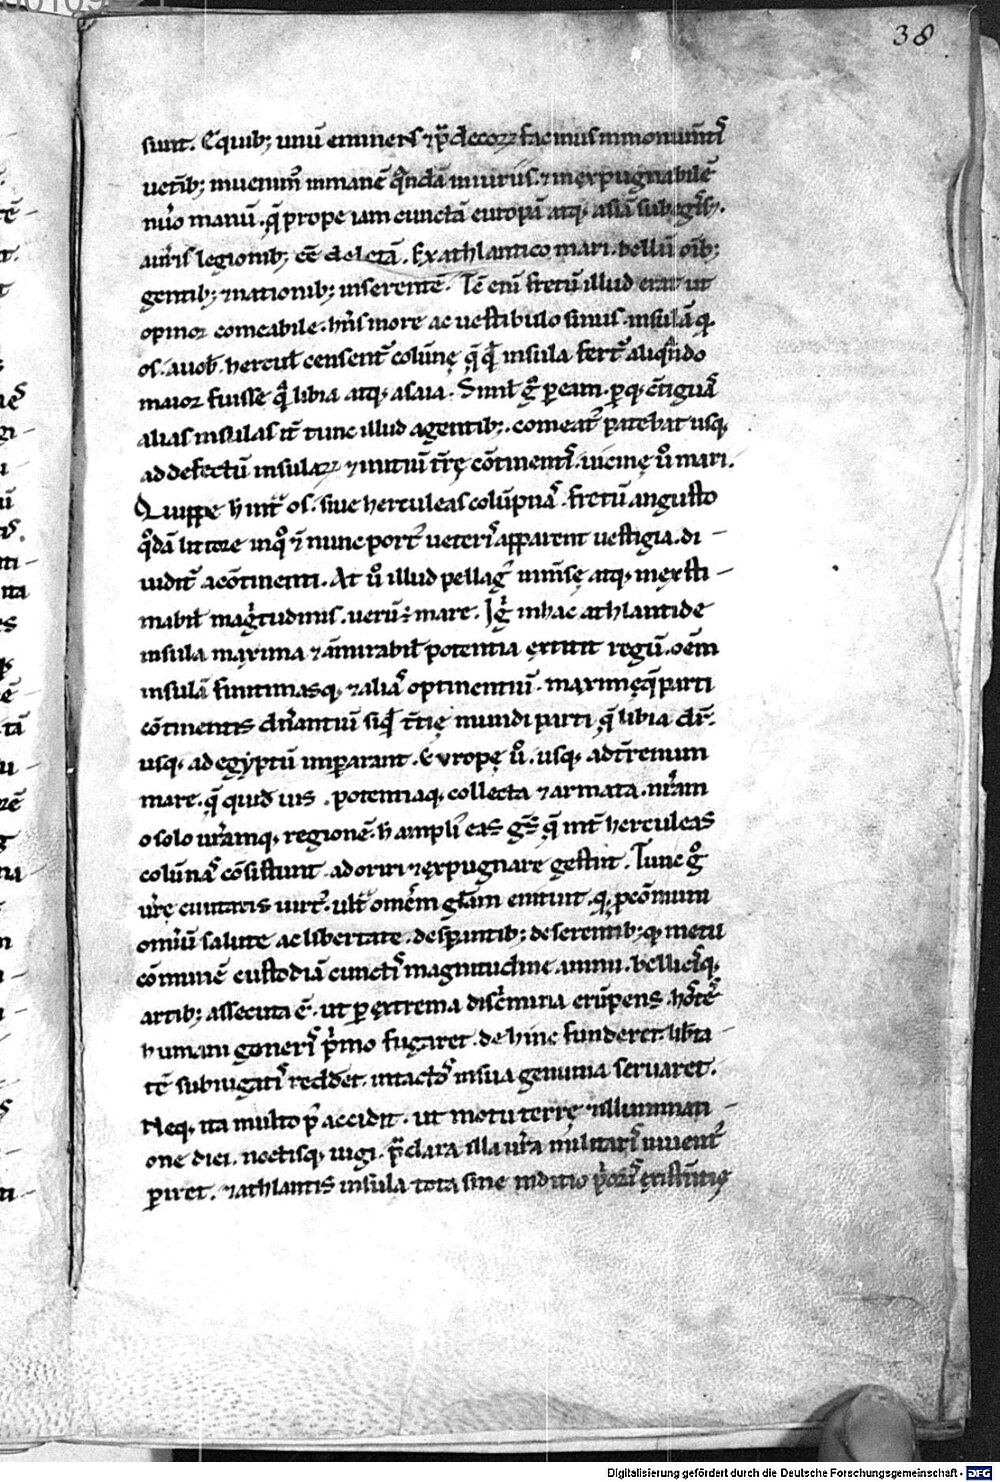 38
sunt. Equib; unū eminens ⁊ p̄decorꝝ facinus inmonum̄tꝭ
uetib; inuenim᷒ inmanē q̄ndā iniuriis. ⁊ inexpugnabilē
nr̄o manū. q̄ prope iam cunctā europā atq; asiā subegis.
ur̄is legionib; eē deletā. Exathlantico mari. bellū oīb;
gentib; ⁊ nationib; inserentē. Tc̄ eni fretū illud erat ut
opinor comeabile. hn̄s more ac uestibulo sinus insulā q;
os. auob̄ hercul̄ censent᷒ colūnę q̄ q̄ insula fert᷒ aliqn̄do
maior fuisse q̄ libia atq; asaia. Simł g̊ p̱eam. p̱q; c̄tiguas
alias insulas it̄ tunc illud agentib;. comeat᷒ patebat usq;
addefectū insulaꝝ ⁊ initiū tr̄ę cōtinentꝭ. uicinę ů mari.
Quippe h̄ int̄ os. siue herculeas colūpnas. fretū angusto
q̊dā littore inq̊ ī nunc port᷒ ueterꝭ apparent uestigia. di-
uidit᷒ acōtinenti. At ů illud pellag᷒ inm̄sę atq; inexsti-
mabił mag̍tudinis. uerū ⁊ mare. Ig̍ inhac athlantide
insula maxima ⁊ āmirabił potentia extitit regū. oēm
insulā finitimasq; ⁊ alias optinentiū. maximęq̄ parti
cōtinentis dn̄antiū siqd̄ t̄tię mundi parti q̄ libia dr̄.
usq; adegyptū imparant. Europę ů. usq; adtr̄enum
mare. q̄ quid uis. potentiaq; collecta ⁊ armata. nr̄am
osolo ur̄amq; regionē. h̄ ampli᷒ eas g̅s q̄ int̄ herculeas
colūnas cōsistunt. adoriri ⁊ expugnare gestiit. Tunc g̊
ur̄ę ciuitatis uirt᷒. ult̄ omēm gl̄am enituit. q; p̱cōmuni
omiū salute ac libertate. desp̱antib; deserentib;q; metu
cōmunē custodiā cunctis magnitudine animi. bellicisq;
artib; assecuta ē. ut p̱ extrema disc̍mina erūpens. hostes
humani generꝭ p̍mo fugaret. dehinc funderet. lib̄ta-
tē subiugatꝭ reddet. intactos insua genuina seruaret.
Neq; ita multo p᷒ accidit. ut motu terrę ⁊ illuminati-
one diei. noctisq; iugi. p̄clara illa ur̄a militarꝭ iuuent᷒
p̱iret. ⁊ athlantis insula tota sine inditio p̍orꝭ existentię
Digitalisierung gefördert durch die Deutsche Forschungsgemeinschaft - DFG